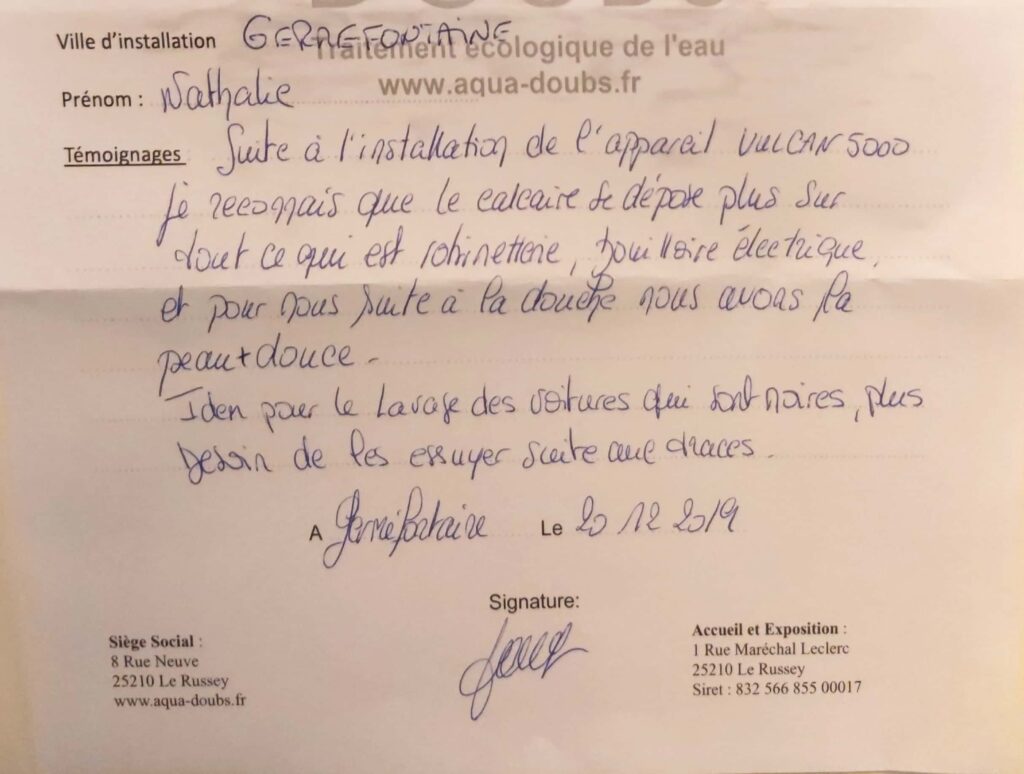 DOUBS
Traitement écologique de l'eau
www.aqua-doubs.fr
Ville d'installation GERREFONTAINE
Prénom : Nathalie
Témoignages Suite à l'installation de l'appareil VULCAN 5000
je reconnais que le calcaire se dépose plus sur
tout ce qui est robinetterie, bouilloire électrique,
et pour nous suite à la douche nous avons la
peau + douce.
Iden pour le lavage des voitures qui sont noires, plus
besoin de les essuyer suite aux traces.
A Le 20 12 2019
Signature:
Siège Social :
8 Rue Neuve
25210 Le Russey
www.aqua-doubs.fr
Accueil et Exposition :
1 Rue Maréchal Leclerc
25210 Le Russey
Siret : 832 566 855 00017